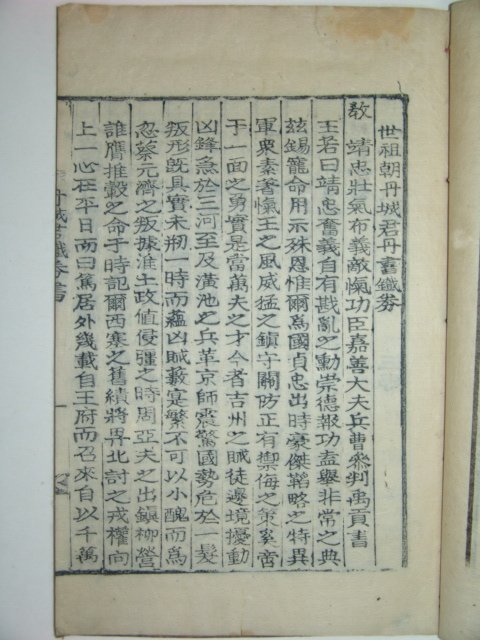 世祖朝丹城君丹書鐵券
敎 靖忠壯氣布義敵愾功臣嘉善大夫兵曹參判禹貢書
王若曰靖忠奮義自有戡亂之勳崇德報功盍擧非常之典
玆錫寵命用示殊恩惟爾爲國貞忠出時豪傑韜略之特異
軍衆素著愾王之風威猛之鎭守關防正有禦侮之策奚啻
于一面之勇實是當萬夫之才今者吉州之賊徒邊境擾動
凶鋒急於三河至及潢池之兵革京師震驚國勢危於一髮
叛形旣具實未刱一時而蘊凶賊藪寔繁不可以小醜而爲
忽蔡元濟之叛據淮土政値侵彊之時周亞夫之出鎭柳營
誰膺推轂之命于時記爾西塞之舊績將畀北討之戎權向
上一心在平日而曰篤居外幾載自王府而召來自以千萬
丹城君鐵券書